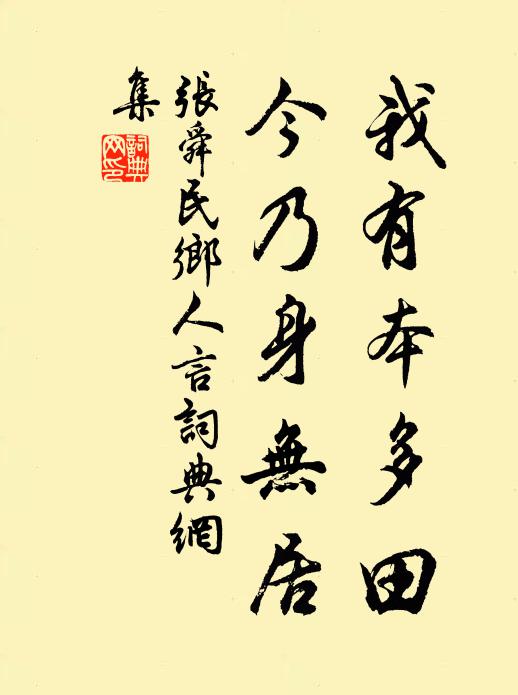 我有本多田
今乃身無居
張舜民鄉人言詞典網
集
詞典
網印